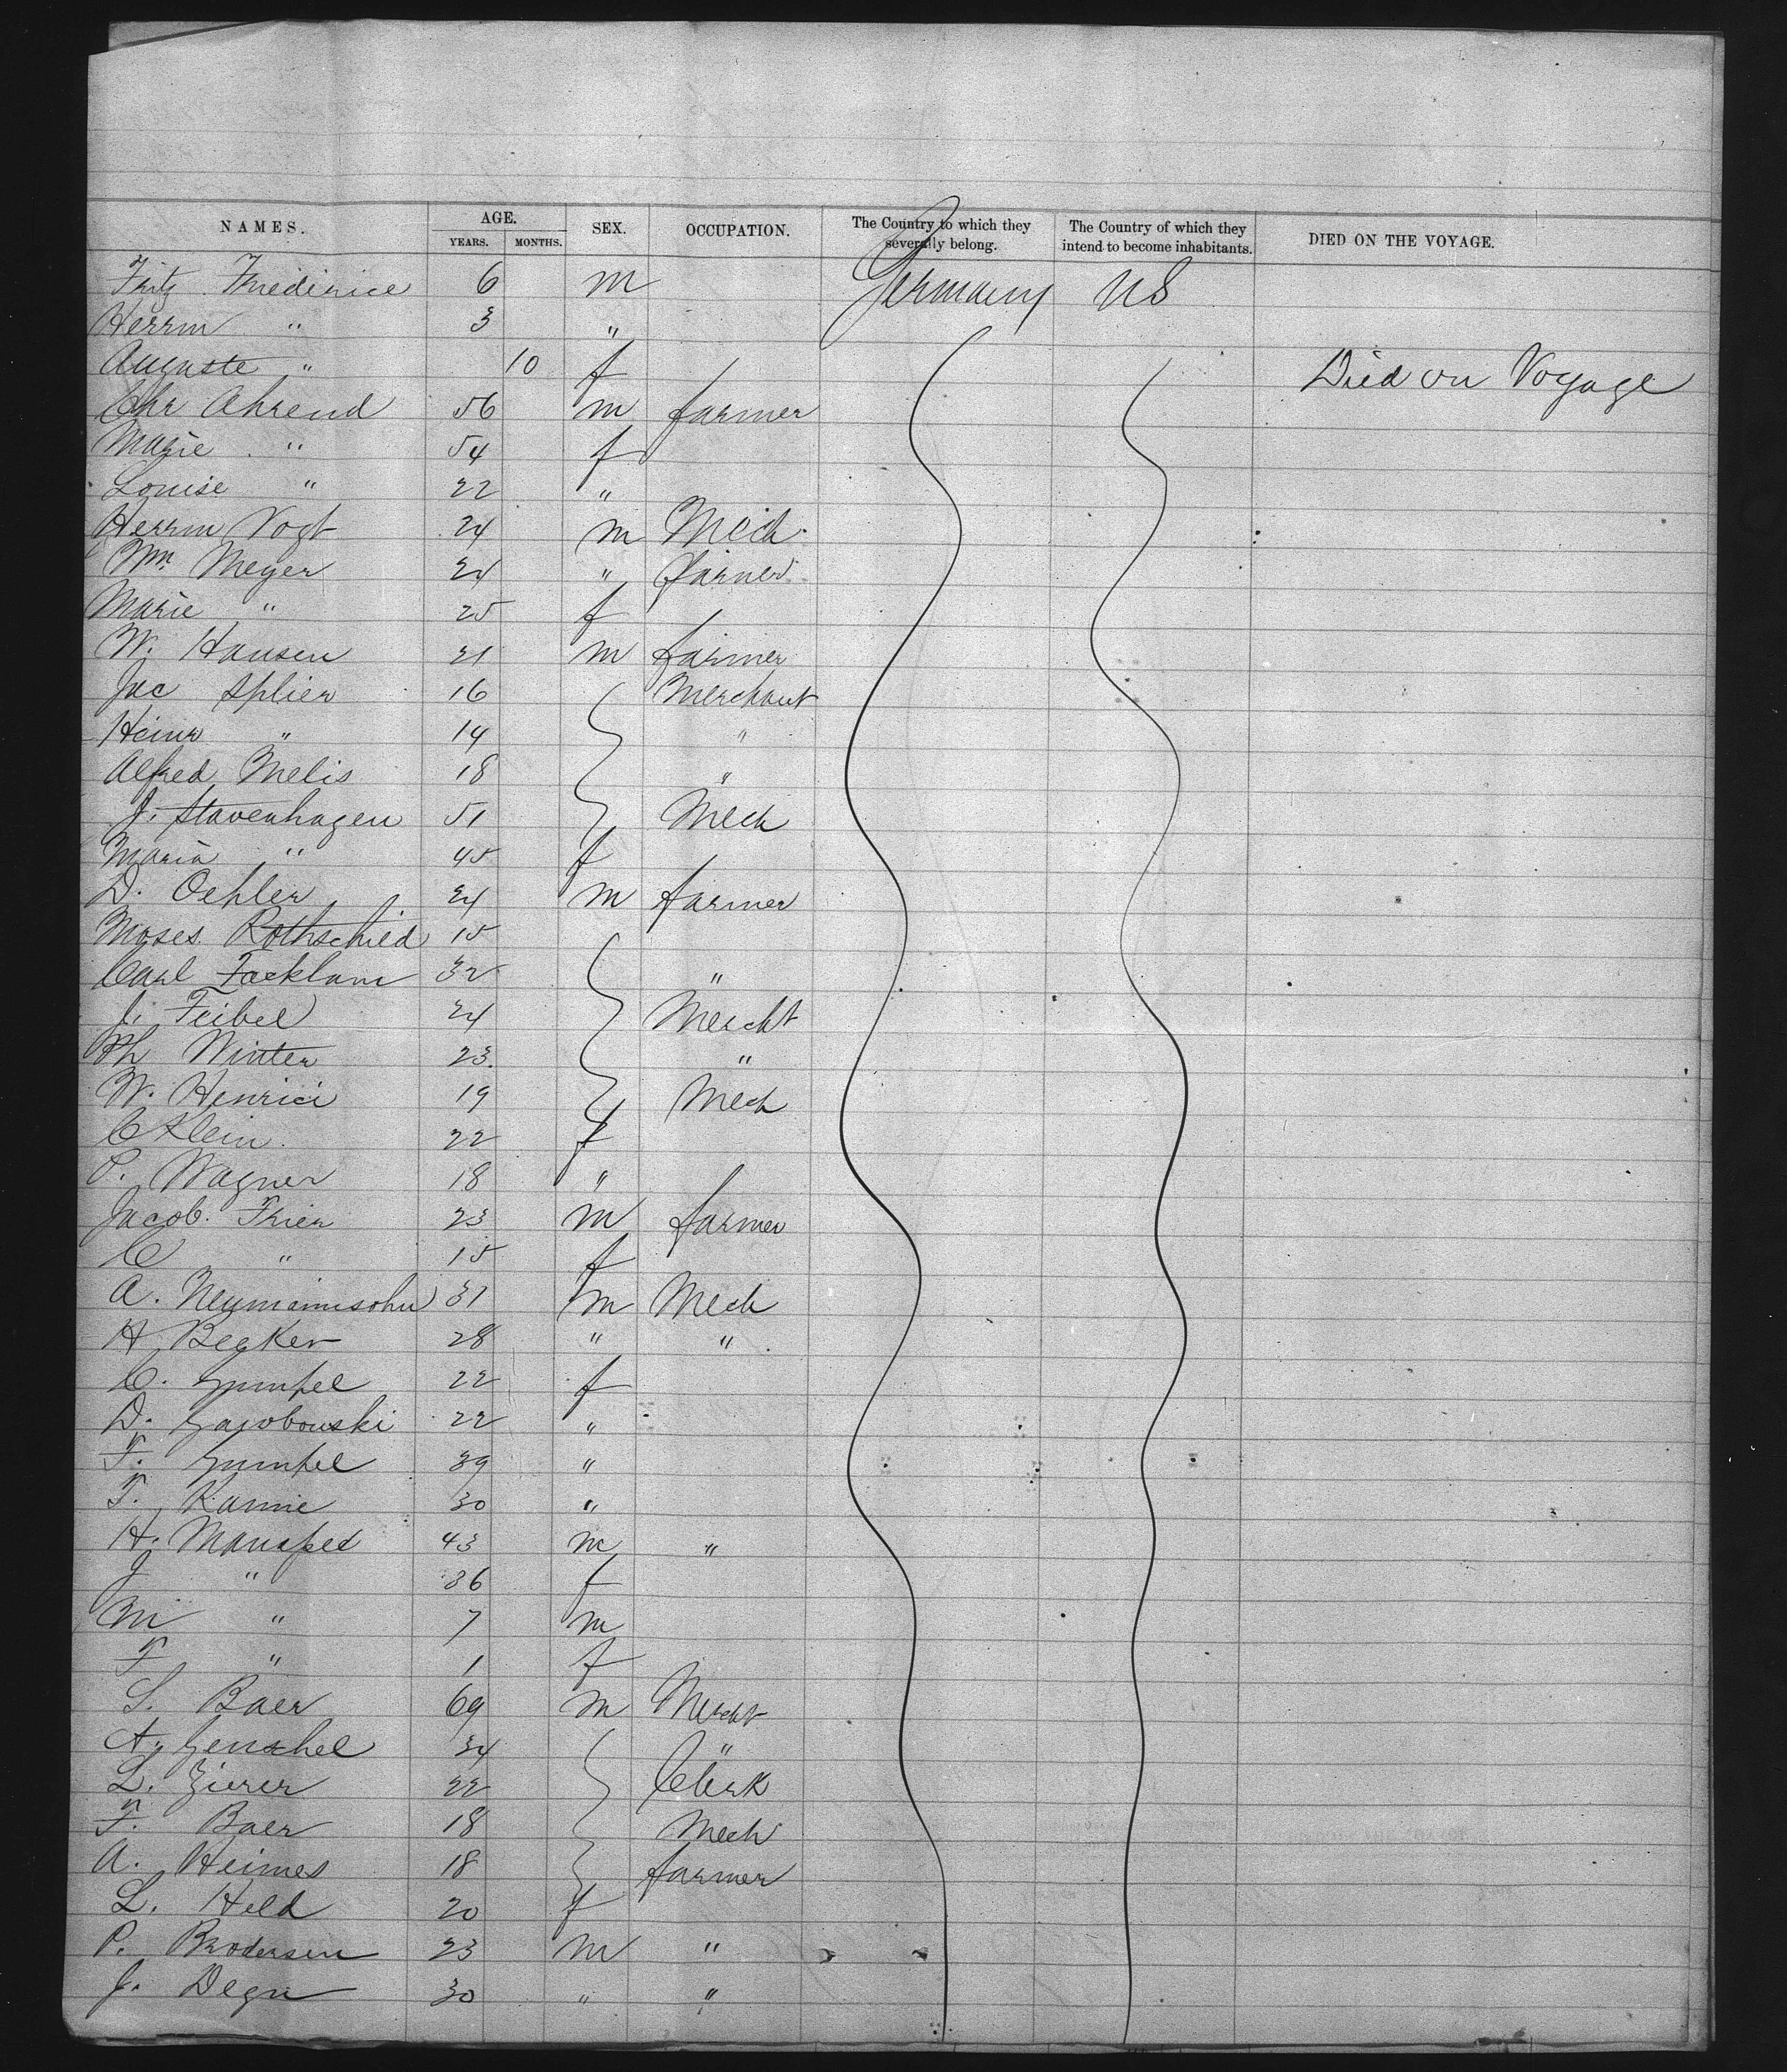 NAMES. AGE. SEX. OCCUPATION. The Country to which they severally belong. The Country of which they intend to become inhabitants. DIED ON THE VOYAGE.
YEARS. MONTHS.
Fritz Friederice 6 m Germany US
Herrm " 3 "
Auguste " 10 f Died on Voyage
Chr Ahrend 56 m farmer
Marie " 54 f
Louise " 22 "
Herrm Vogt 24 m Mech.
Wm. Meyer 24 " farmer
Marie " 25 f
W. Hansen 21 m farmer
Jac Splier 16 Merchant
Heinr " 14 "
Alfred Melis 18 "
J. Stavenhagen 51 Mech
Maria " 45 f
D. Oehler 24 m farmer
Moses Rothschild 15
Carl Facklam 32 "
J. Feibel 24 Mercht
Ph Winter 23. "
W. Henrici 19 Mech
C Klein. 22 f
P. Wagner 18 "
Jacob. Trier 23 m farmer
C " 15 f
A. Neymannsohn 31 m Mech
H Becker 28 " "
C. Gumpel 22 f
D. 22 "
F. Gumpel 39 "
T. Kannie 30 "
H. 43 m "
J " 36 f
M " 7 m
F " 1 f
S. Baer 69 m Mercht
A. Genshel 34 "
L. Zierer 22 Clerk
F. Baer 18 Mech
A. Heimes 18 farmer
L. Held 20 f
P. Brodersen 23 m "
J. Degn 30 " "